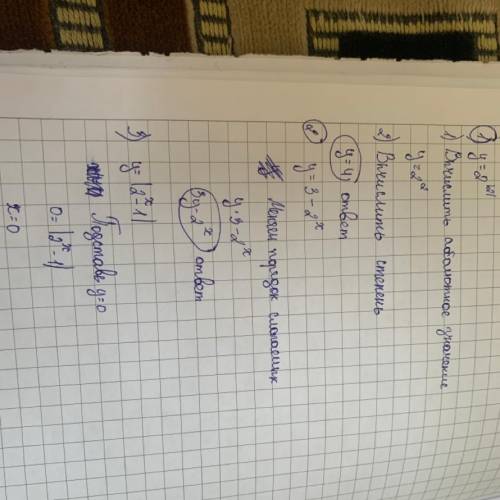 1) y = 2^|2|
1) Вычислить абсолютное значение
y = 2²
2) Вычислить степень
y = 4 ответ
2) y = 3 - 2ˣ
Меняем порядок слогаемых
y · 3 - 2ˣ
3y - 2ˣ ответ
3) y = |2ˣ - 1|
Подставе y = 0
0 = |2ˣ - 1|
x = 0